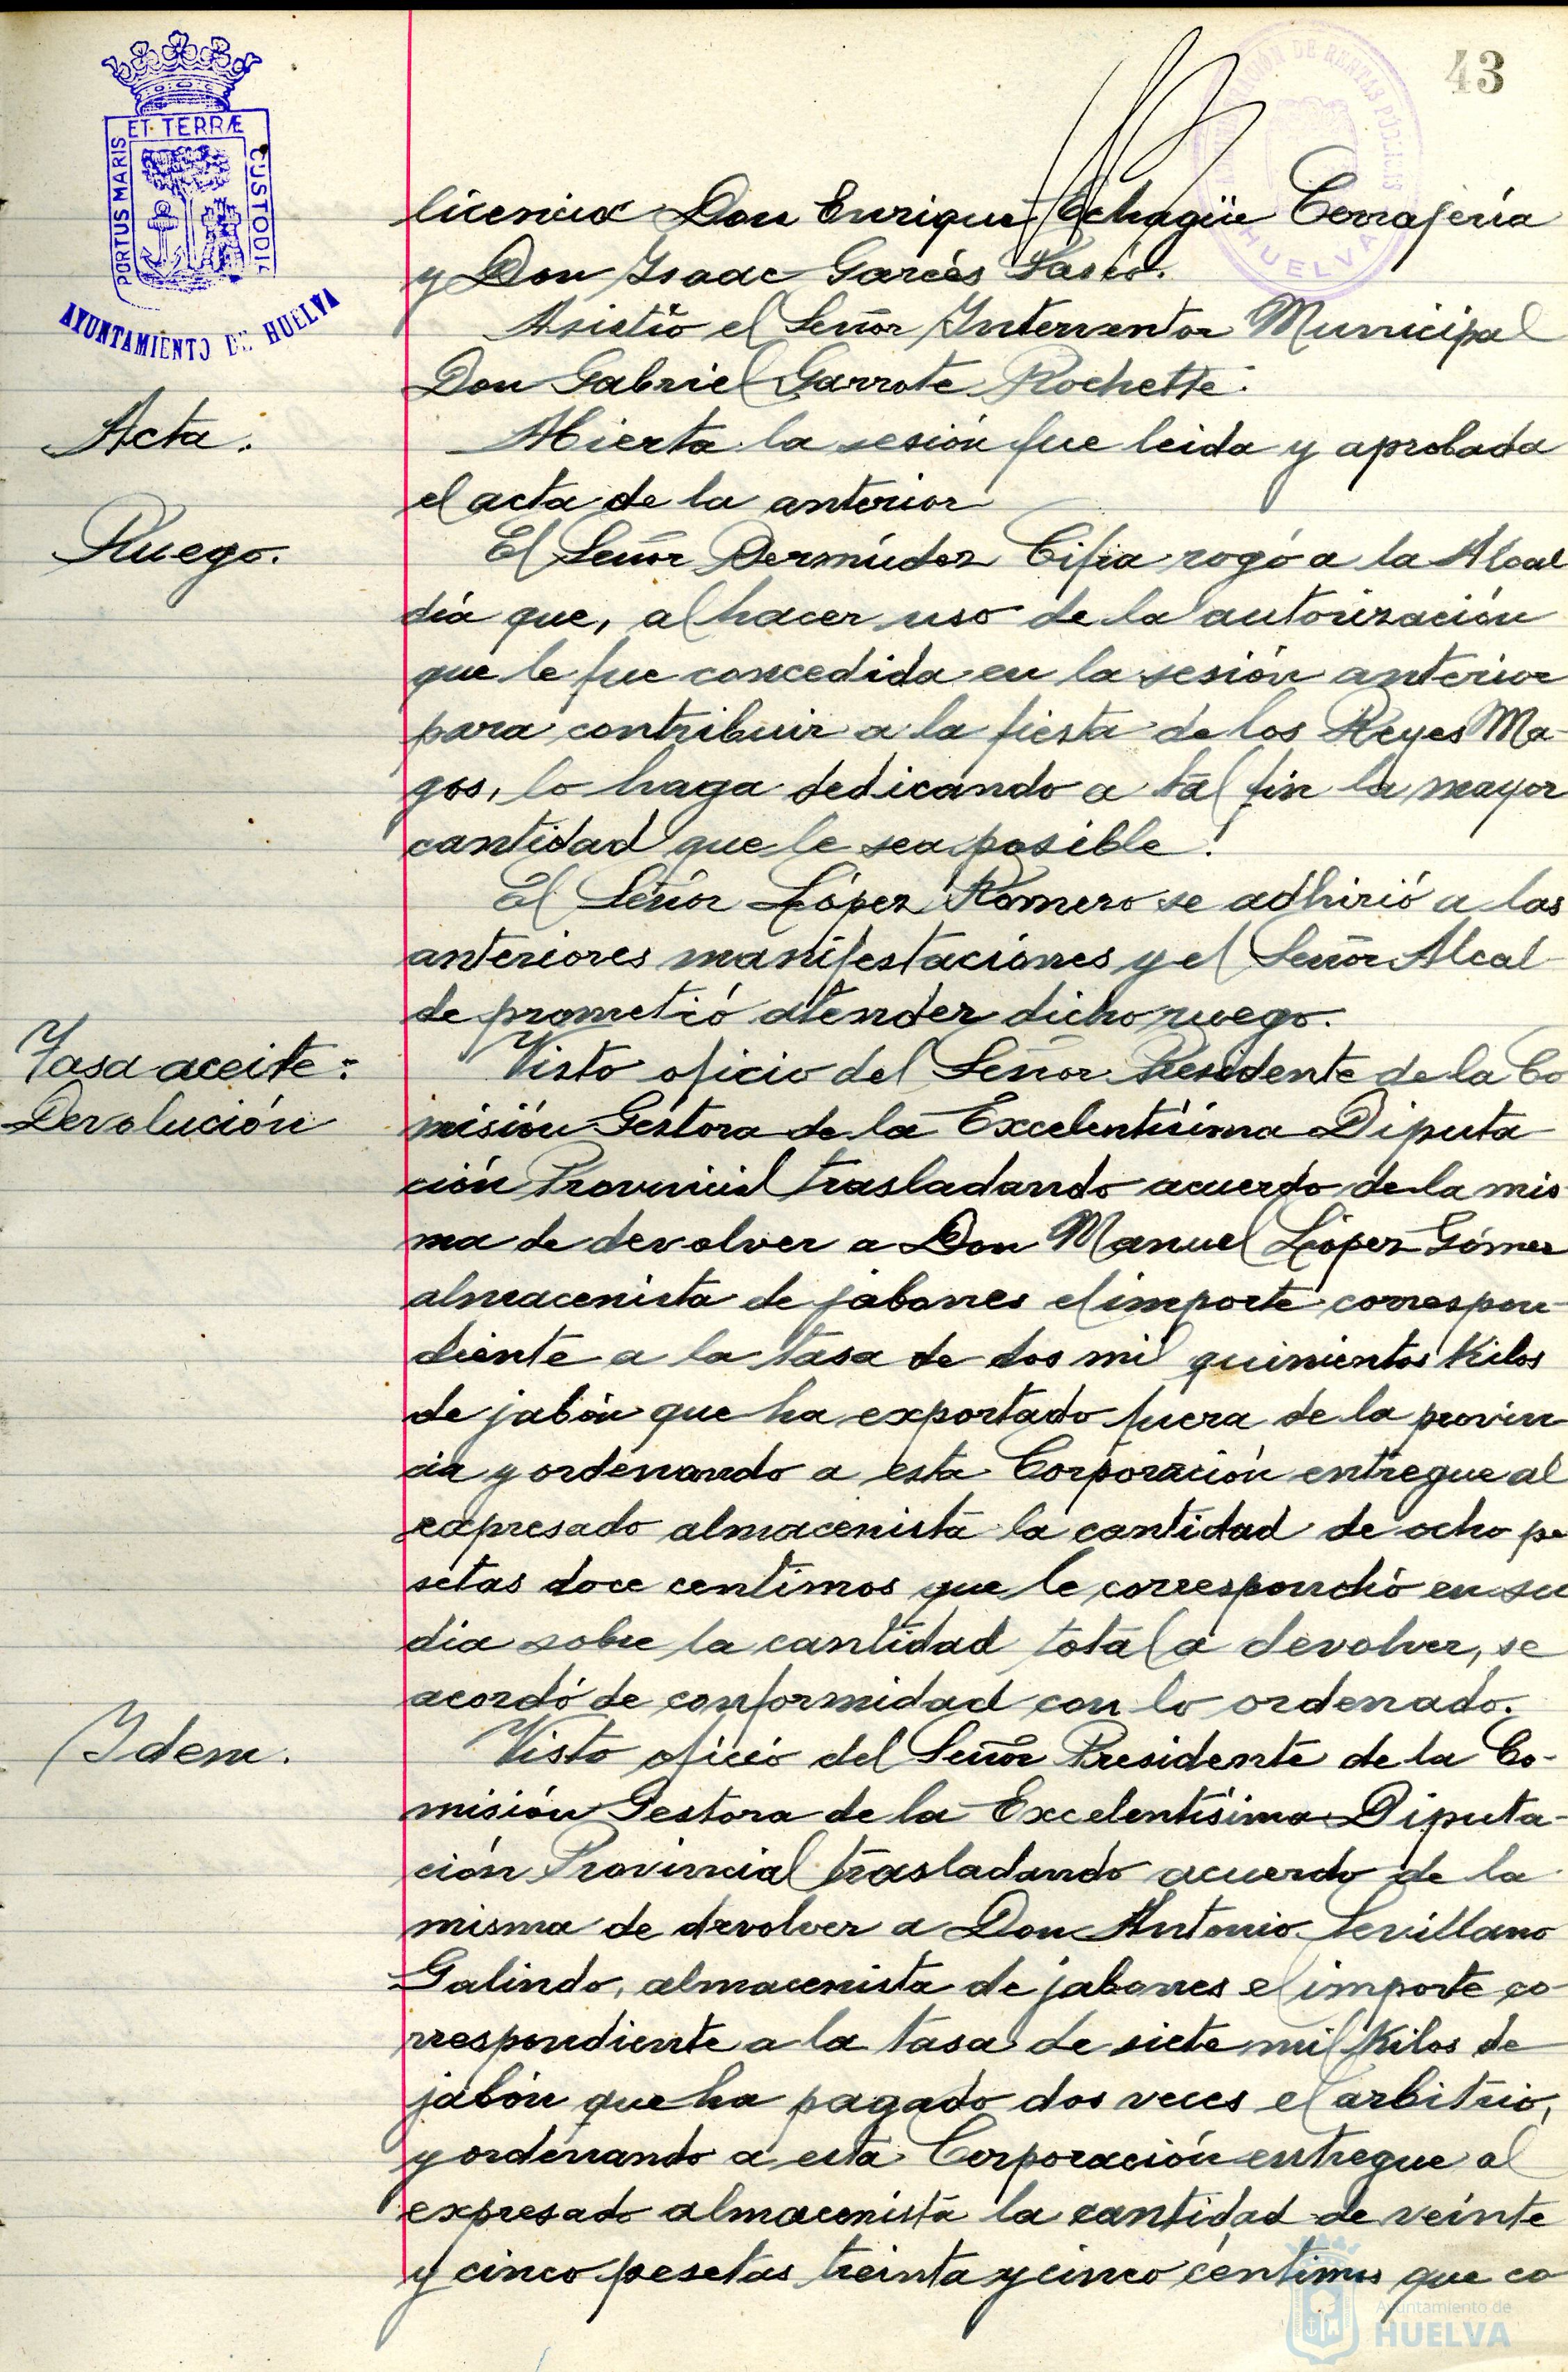 43
ET TERRÆ
PORTUS MARIS
CUSTODIA
AYUNTAMIENTO DE HUELVA
HUELVA
licencia Don Enrique Echagüe Cerrajería
y Don Isaac Garcés
Asistió el Señor Interventor Municipal
Don Gabriel Garrote Rochette.
Acta.
Abierta la sesión fue leida y aprobada
el acta de la anterior
Ruego.
El Señor Bermúdez Cifia rogó a la Alcal
día que, al hacer uso de la autorización
que le fue concedida en la sesión anterior
para contribuir a la fiesta de los Reyes Ma-
gos, lo haga dedicando a tal fin la mayor
cantidad que le sea posible.
El Señor López Romero se adhirió a las
anteriores manifestaciones y el Señor Alcal-
de prometió atender dicho ruego.
Tasa aceite:
Devolución
Visto oficio del Señor Presidente de la Co
misión Gestora de la Excelentísima Diputa
ción Provincial trasladando acuerdo de la mis
ma de devolver a Don Manuel López Gómez
almacenista de jabones el importe correspon-
diente a la tasa de dos mil quinientos Kilos
de jabón que ha exportado fuera de la provin
cia y ordenando a esta Corporación entregue al
expresado almacenista la cantidad de ocho pe
setas doce centimos que le correspondió en su
dia sobre la cantidad total a devolver, se
acordó de conformidad con lo ordenado.
Idem.
Visto oficio del Señor Presidente de la Co-
misión Gestora de la Excelentísima Diputa-
ción Provincial trasladando acuerdo de la
misma de devolver a Don Antonio Sevillano
Galindo, almacenista de jabones el importe co-
rrespondiente a la tasa de siete mil Kilos de
jabón que ha pagado dos veces el arbitrio,
y ordenando a esta Corporación entregue al
expresado almacenista la cantidad de veinte
y cinco pesetas treinta y cinco céntimos que co
Ayuntamiento de
HUELVA